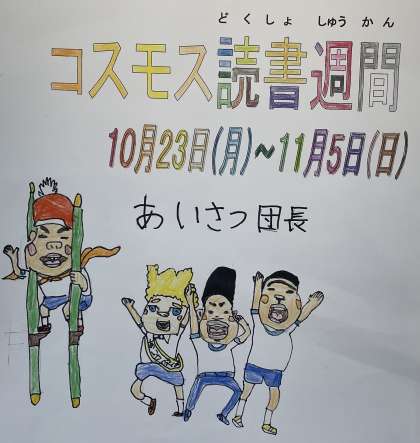 どくしょ しゅうかん
コスモス読書週間
10月23日(月)~11月5日(日)
あいさつ団長